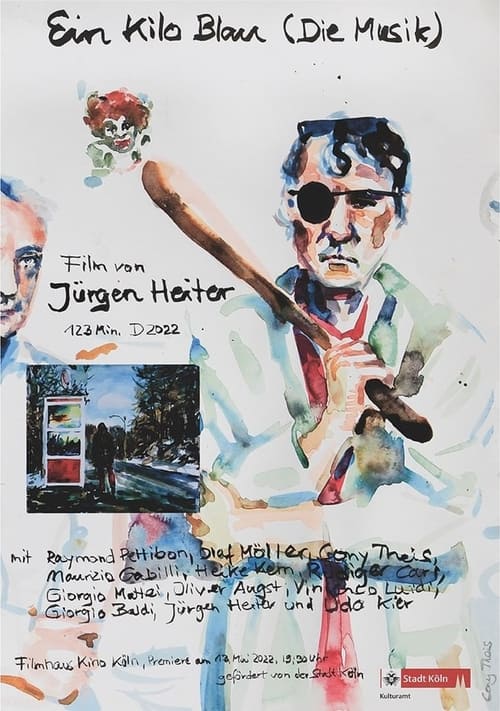 Ein Kilo Blau (Die Musik)
Film von
Jürgen Heiter
123 Min. D 2022
mit Raymond Pettibon, Olaf Möller, Cony Theis,
Maurizio Gabilli, Heike Kern, Rüdiger Carl,
Giorgio Mattei, Olivier Augst, Vincenzo Luidi,
Giorgio Baldi, Jürgen Heiter und Udo Kier
Filmhaus Kino Köln, Premiere am 13. Mai 2022, 19,30 Uhr
gefördert von der Stadt Köln
Stadt Köln
Kulturamt
Cony Theis